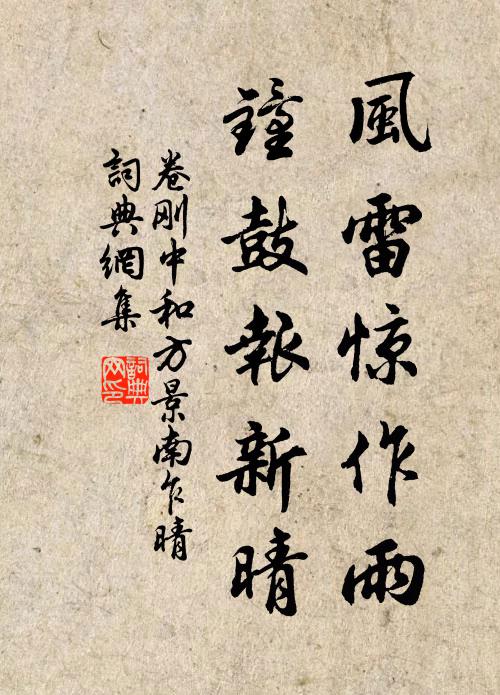 風雷惊作雨
鐘鼓報新晴
卷刚中和方景南乍晴
詞典網集
詞典
网印